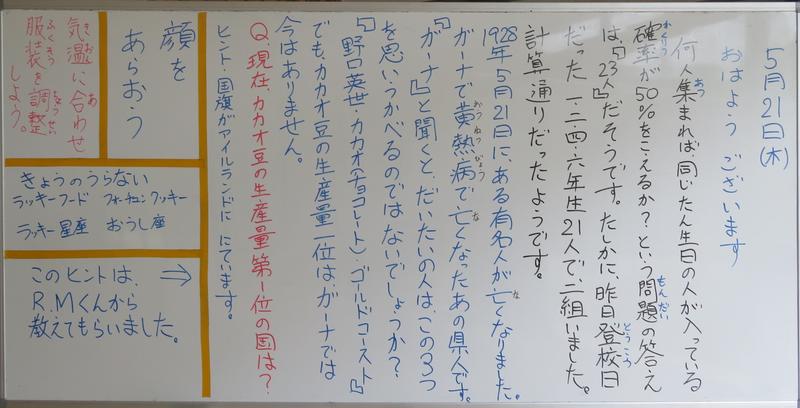 5月21日(木)
おはよう ございます
何人集まれば、同じたん生日の人が入っている
確率が50%をこえるか?という問題の答え
は、『23人』だそうです。たしかに、昨日登校日
だった一・二・四・六年生21人で、二組いました。
計算通りだったようです。
1928年5月21日に、ある有名人が亡くなりました。
ガーナで黄熱病で亡くなったあの県人です。
『ガーナ』と聞くと、だいたいの人は、この3つ
を思いうかべるのではないでしょうか?
『野口英世・カカオ(チョコレート)・ゴールドコースト』
でも、カカオ豆の生産量一位は、ガーナでは
今はありません。
Q.現在、カカオ豆の生産量第一位の国は?
ヒント・国旗がアイルランドに にています。
顔を
あらおう
気温に合わせ
服装を調整
しよう。
きょうのうらない
ラッキーフード フォーチュンクッキー
ラッキー星座 おうし座
⇒
このヒントは、
R.Mくんから
教えてもらいました。